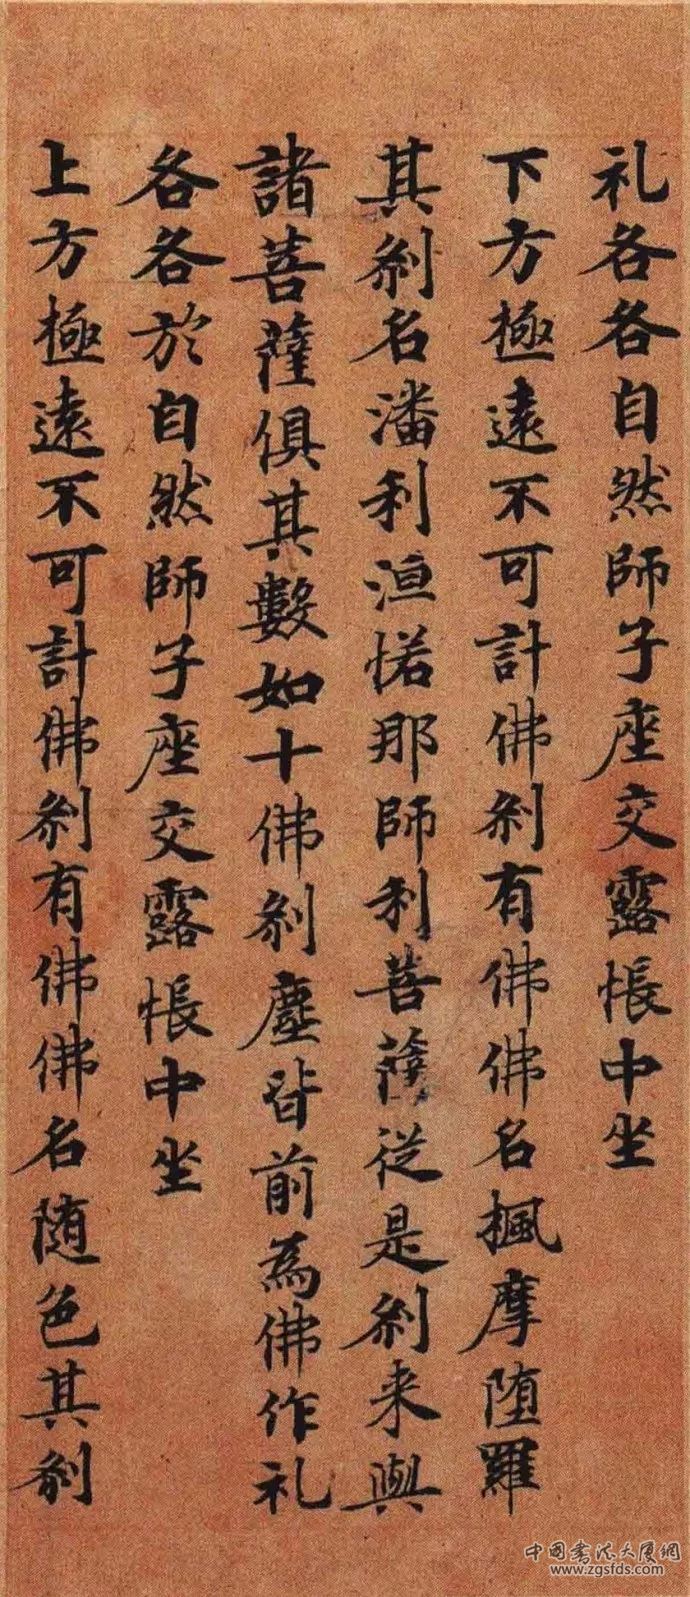 礼各各自然師子座交露帳中坐
下方極遠不可計佛刹有佛佛名楓摩堕羅
其刹名潘利洹惒那師利菩薩從是刹来與
諸菩薩俱其數如十佛刹塵皆前為佛作礼
各各於自然師子座交露帳中坐
上方極遠不可計佛刹有佛佛名随色其刹
中国书法大厦網
www.zgsfds.com